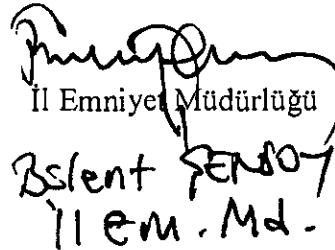 İl Emniyet Müdürlüğü
Bülent ŞENSOY
İl Em. Md.